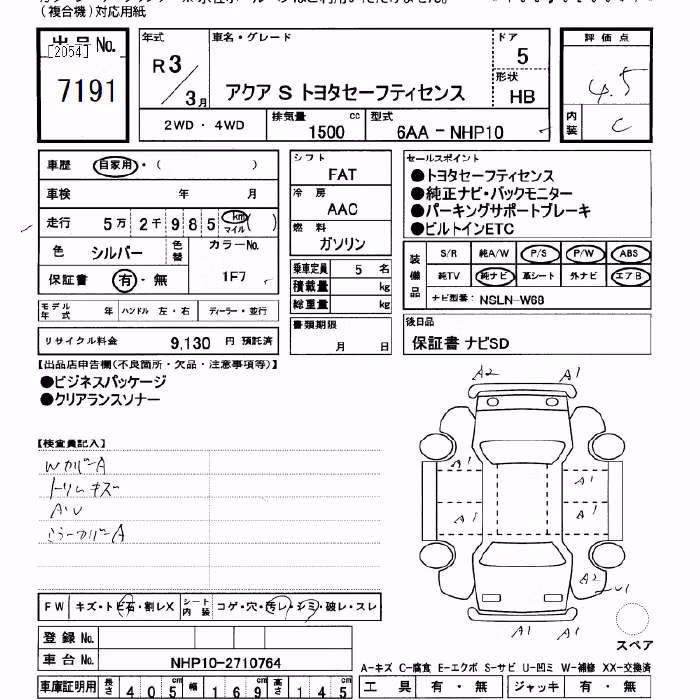 (複合機)対応用紙
出品No.
[2054]
7191
年式
R3/3月
車名・グレード
アクア S トヨタセーフティセンス
ドア
5
形状
HB
評価点
4.5
内装
C
2WD・4WD
排気量
1500 cc
型式
6AA-NHP10
車歴 自家用・( )
車検 年 月
走行 5万2千985 km マイル ( )
色 シルバー
色替
カラーNo.
1F7
保証書 有・無
モデル年式 年 ハンドル 左・右 ディーラー・並行
リサイクル料金 9,130 円 預託済
シフト
FAT
冷房
AAC
燃料
ガソリン
乗車定員 5 名
積載量 kg
総重量 kg
書類期限
月 日
セールスポイント
●トヨタセーフティセンス
●純正ナビ・バックモニター
●パーキングサポートブレーキ
●ビルトインETC
装備品
S/R 純A/W P/S P/W ABS
純TV 純ナビ 革シート 外ナビ エアB
ナビ型番: NSLN-W68
後日品
保証書 ナビSD
【出品店申告欄(不良箇所・欠品・注意事項等)】
●ビジネスパッケージ
●クリアランスソナー
【検査員記入】
WカバーA
トリムキズ
AU
ミラーカバーA
A2 A1
A1 A1
A1 A1
A2
A1 A1
スペア
FW キズ・トビ石・割レX
シート内装 コゲ・穴・汚レ・シミ・破レ・スレ
登録No.
車台No. NHP10-2710764
車庫証明用 長さ 405cm 幅 169cm 高さ 145cm
A-キズ C-腐食 E-エクボ S-サビ U-凹ミ W-補修 XX-交換済
工具 有・無 ジャッキ 有・無